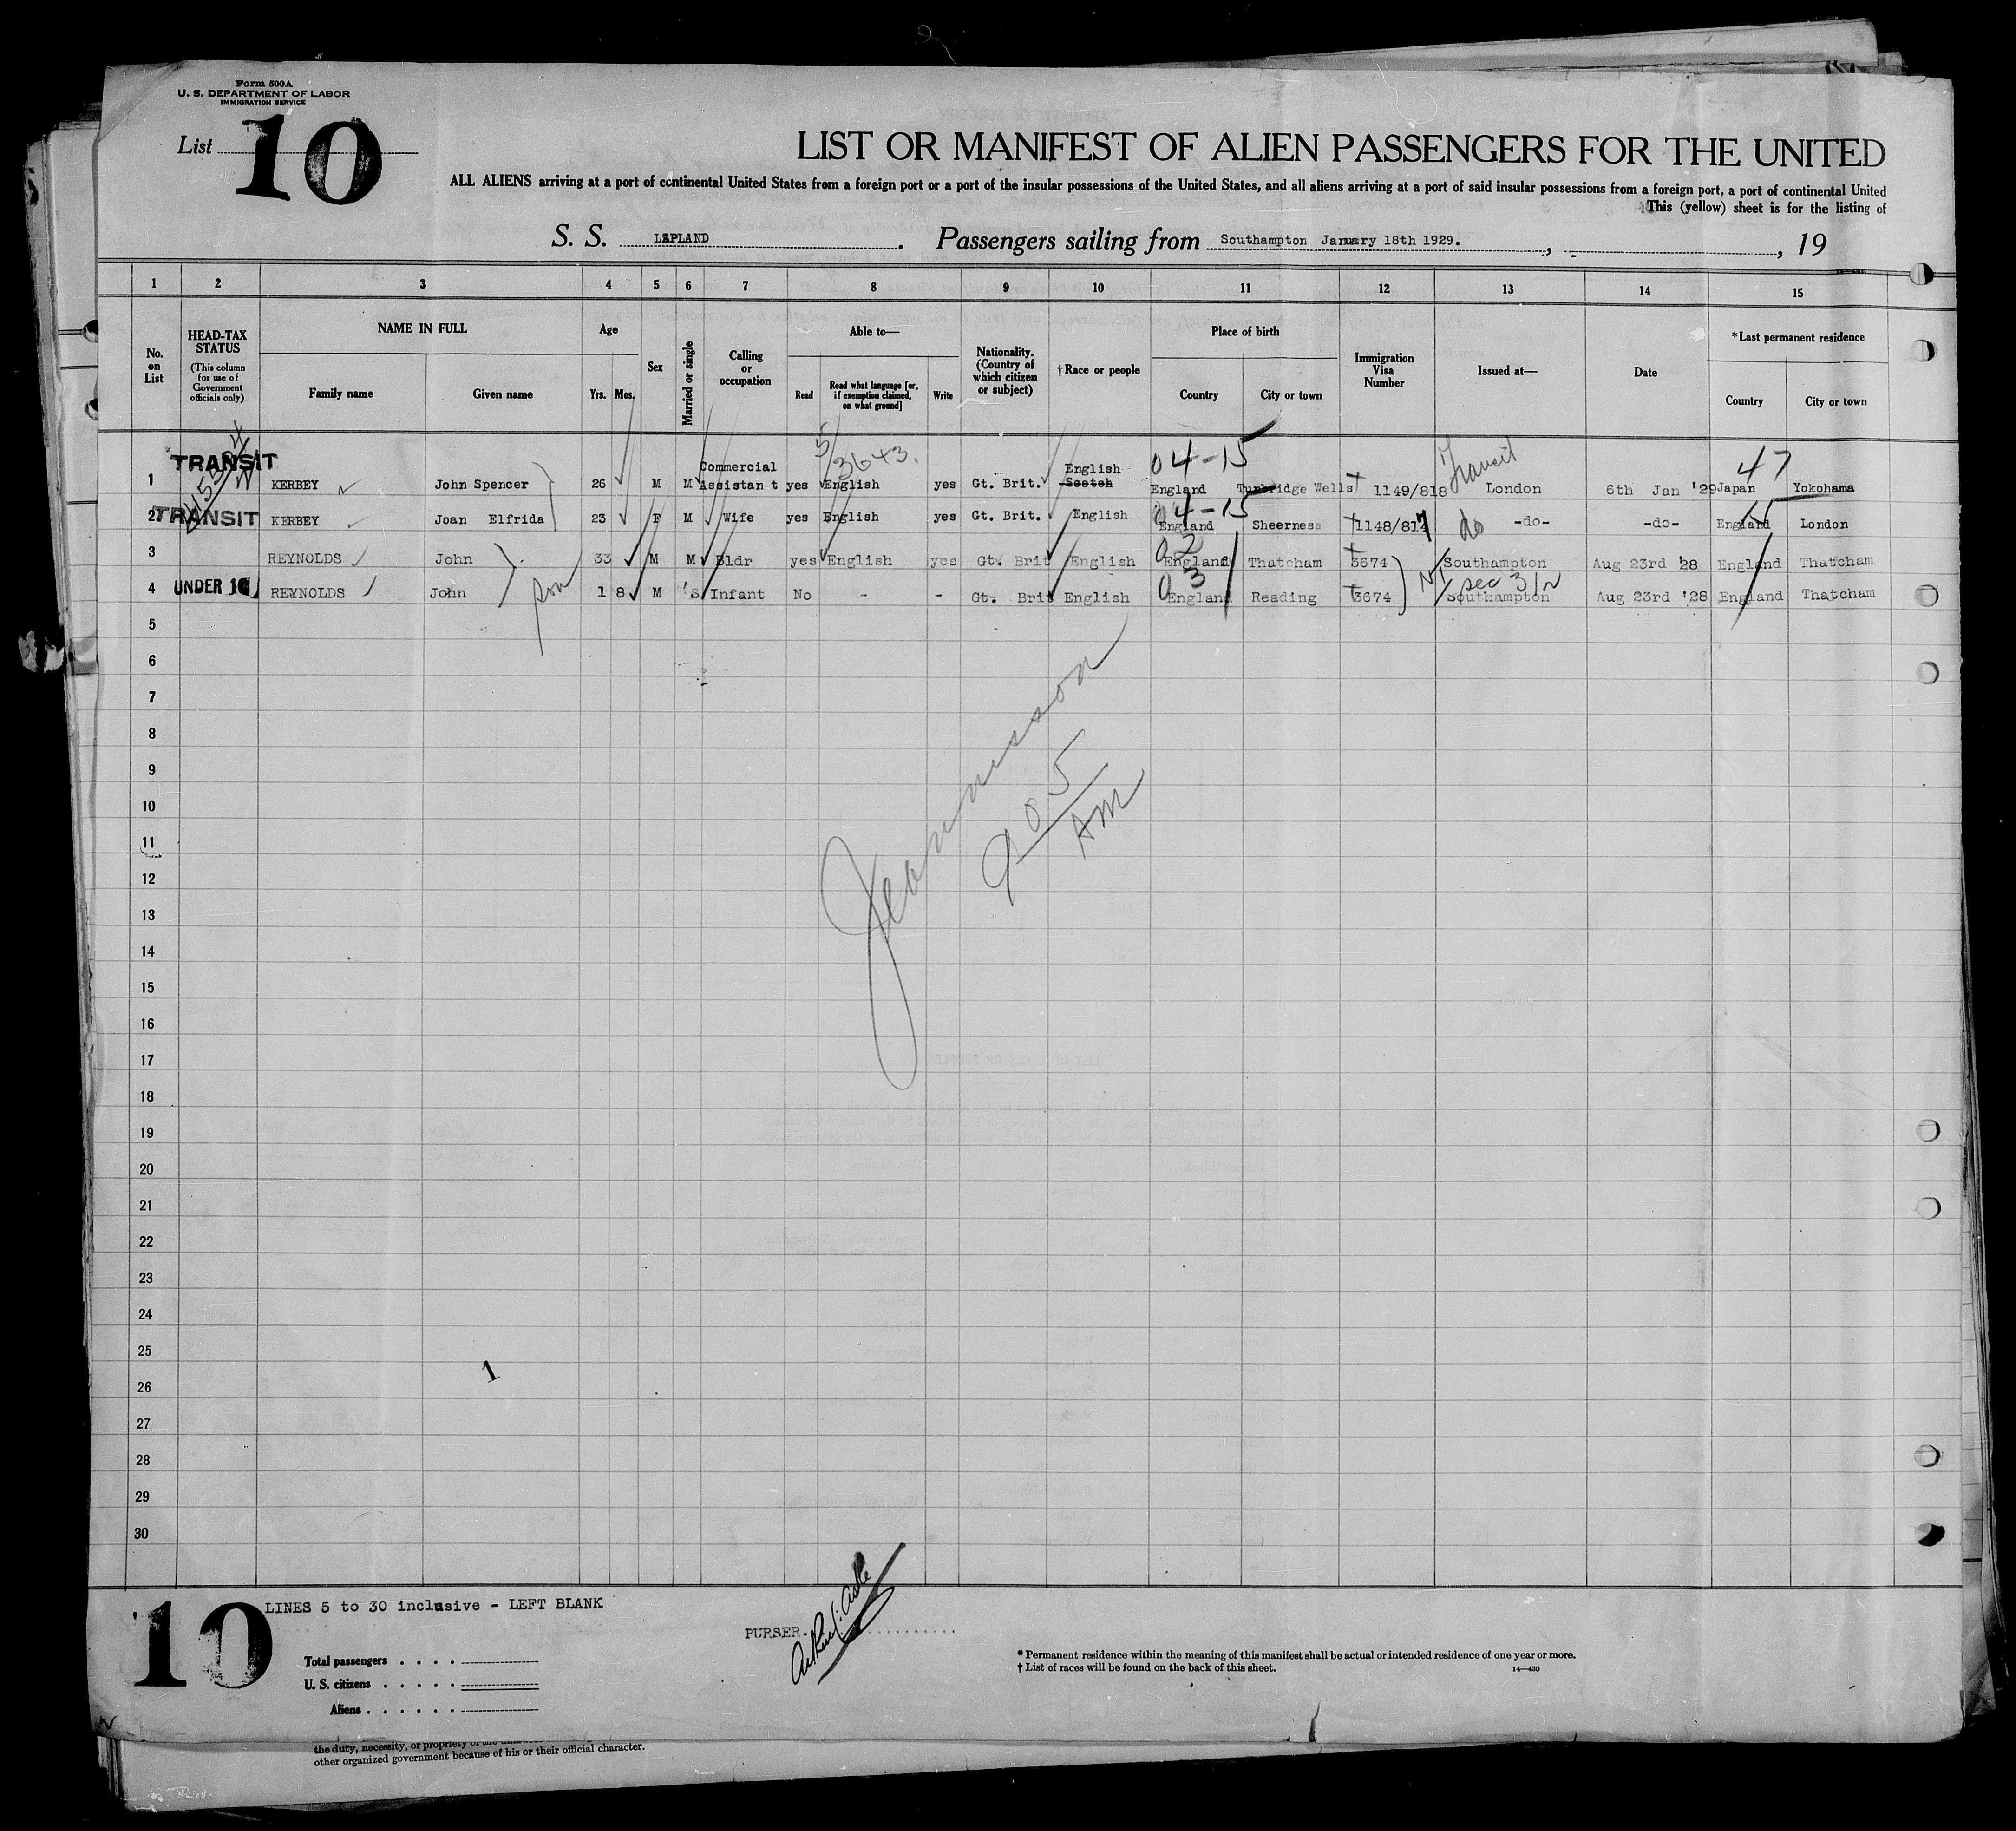 Form 500A
U. S. DEPARTMENT OF LABOR
IMMIGRATION SERVICE
List 10
LIST OR MANIFEST OF ALIEN PASSENGERS FOR THE UNITED
ALL ALIENS arriving at a port of continental United States from a foreign port or a port of the insular possessions of the United States, and all aliens arriving at a port of said insular possessions from a foreign port, a port of continental United
This (yellow) sheet is for the listing of
S. S. LAPLAND. Passengers sailing from Southampton January 18th 1929. , , 19
1 2 3 4 5 6 7 8 9 10 11 12 13 14 15
No. on List
HEAD-TAX STATUS
(This column for use of Government officials only)
NAME IN FULL
Family name Given name
Age
Yrs. Mos.
Sex
Married or single
Calling or occupation
Able to—
Read
Read what language [or, if exemption claimed, on what ground]
Write
Nationality. (Country of which citizen or subject)
†Race or people
Place of birth
Country City or town
Immigration Visa Number
Issued at—
Date
*Last permanent residence
Country City or town
5/3643.
04-15
Transit
47
1 TRANSIT KERBEY John Spencer 26 M M Commercial Assistant yes English yes Gt. Brit. English Scotch England Tunbridge Wells 1149/818 London 6th Jan '29 Japan Yokohama
04-15
15
2 TRANSIT KERBEY Joan Elfrida 23 F M Wife yes English yes Gt. Brit. English England Sheerness 1148/817 do -do- -do- England London
02
3 REYNOLDS John 33 M M Bldr yes English yes Gt. Brit English England Thatcham 3674 Southampton Aug 23rd '28 England Thatcham
03
son
sec 3
4 UNDER 16 REYNOLDS John 1 8 M S Infant No - - Gt. Brit English England Reading 3674 Southampton Aug 23rd '28 England Thatcham
5
6
7
8
9
10
11
12
13
14
15
16
17
18
19
20
21
22
23
24
25
26
27
28
29
30
905
AM
1
10
LINES 5 to 30 inclusive - LEFT BLANK
PURSER.
Total passengers
U. S. citizens
Aliens
* Permanent residence within the meaning of this manifest shall be actual or intended residence of one year or more.
† List of races will be found on the back of this sheet.
14—430
the duty, necessity, or propriety of
other organized government because of his or their official character.